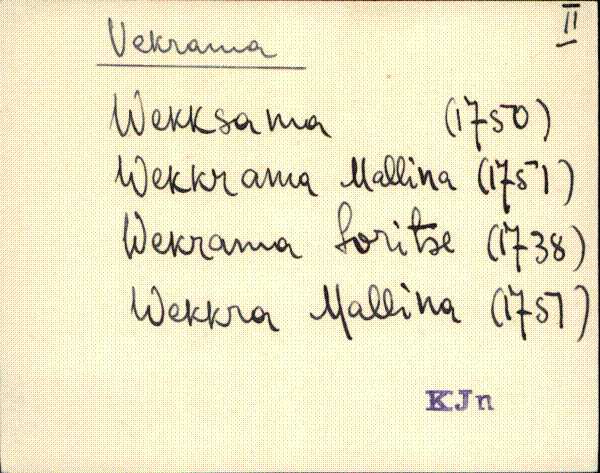 II
Vekrama
Wekksama (1750)
Wekkrama Mallina (1751)
Wekrama Loritse (1738)
Wekkra Mallina (1757)
KJn